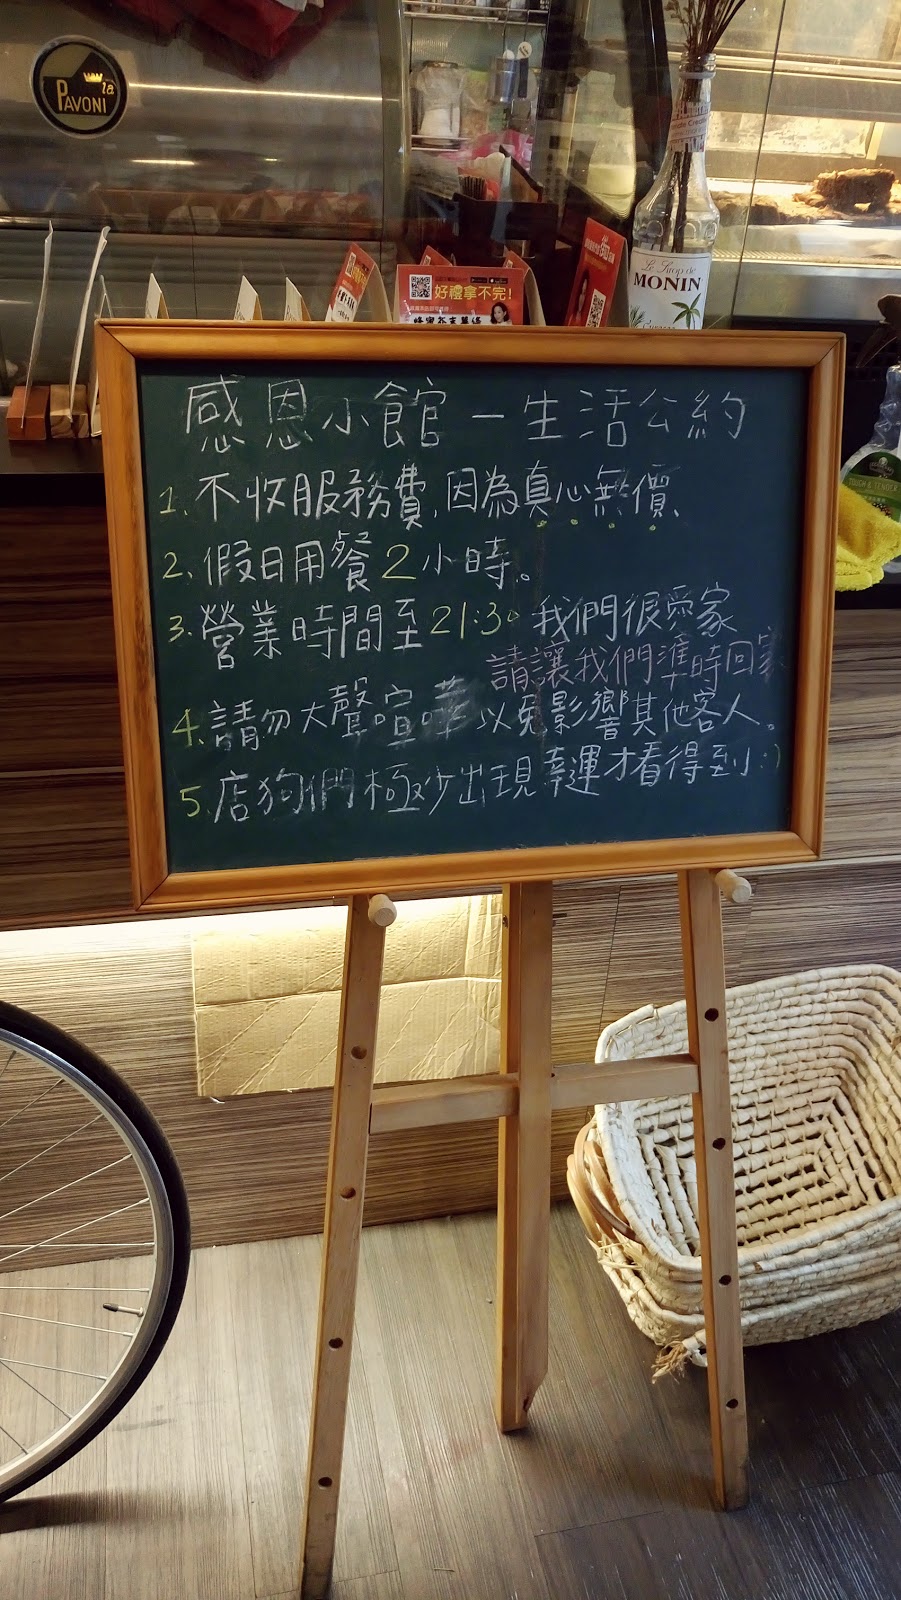 la
PAVONI
好禮拿不完!
Le Sirop de
MONIN
TOUGH & TENDER
感恩小館一生活公約
1. 不收服務費,因為真心無價
2. 假日用餐2小時。
3. 營業時間至21:30 我們很愛家
請讓我們準時回家
4. 請勿大聲喧嘩 以免影響其他客人。
5. 店狗們極少出現 幸運才看得到:)